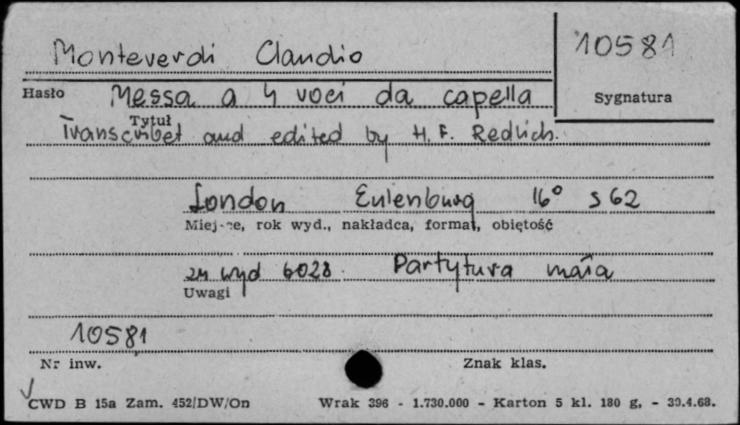 Monteverdi Claudio
10581
Hasło Messa a 4 voci da capella
Sygnatura
Tytuł
Transcribet and edited by H. F. Redlich.
London Eulenburg 16° s 62
Miejsce, rok wyd., nakładca, format, obiętość
zn wyd 6028. Partytura mała
Uwagi
10581
Nr inw.
Znak klas.
CWD B 15a Zam. 452/DW/On Wrak 396 - 1.730.000 - Karton 5 kl. 180 g. - 30.4.68.